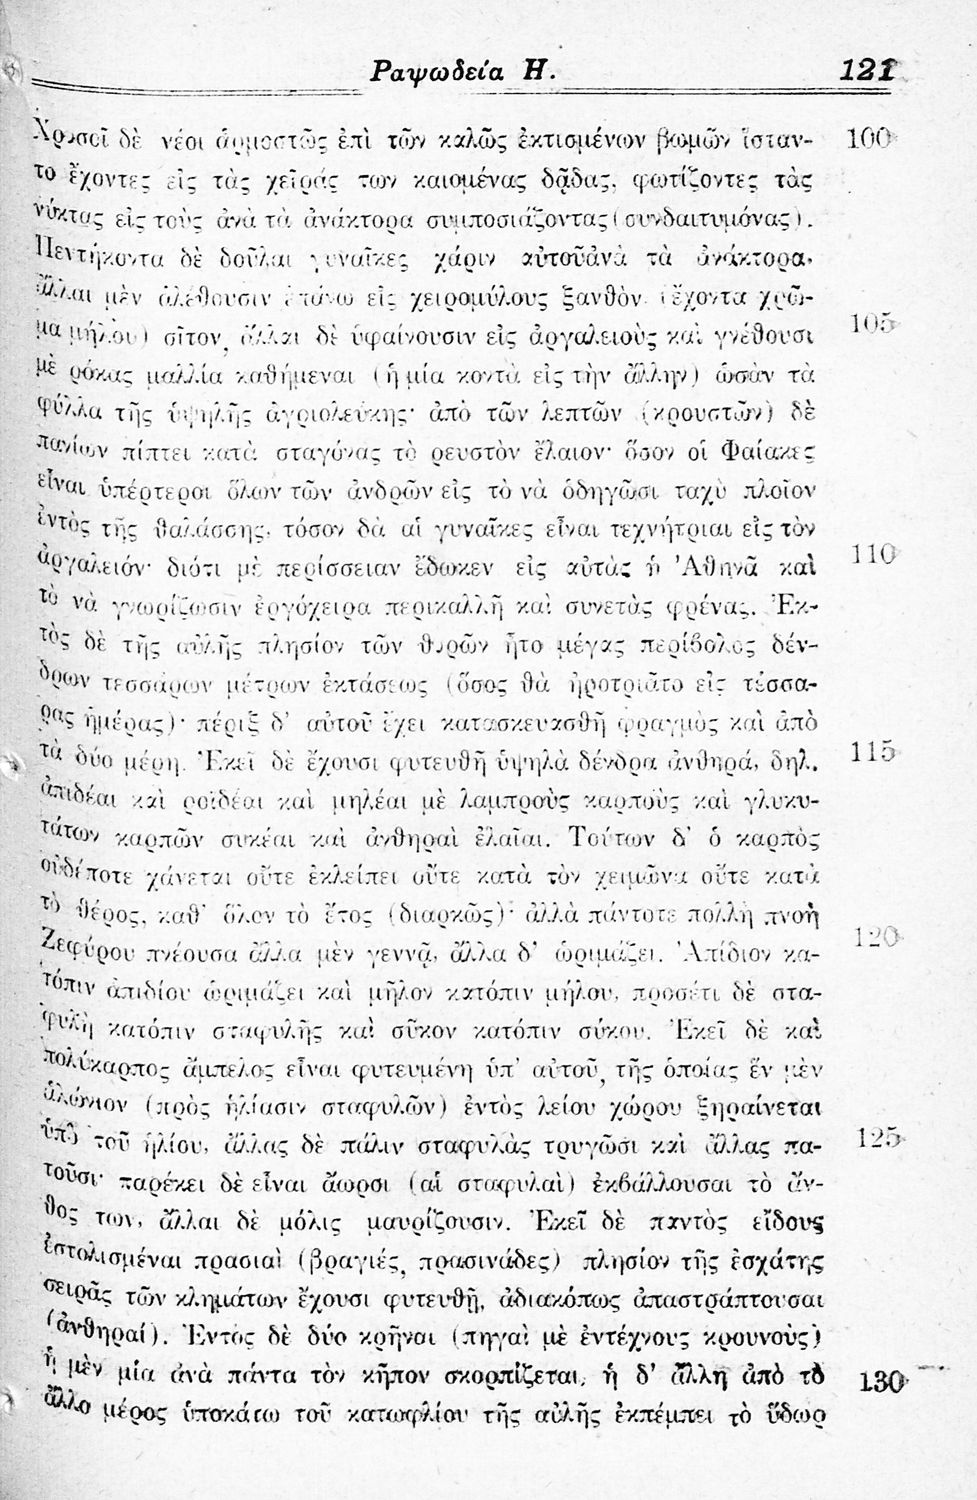 Ραψωδεία Η. 121
Χρυσοῖ δὲ νέοι ἁρμοστῶς ἐπὶ τῶν καλῶς ἐκτισμένων βωμῶν ἵσταν- 100
το ἔχοντες εἰς τὰς χεῖράς των καιομένας δᾷδας, φωτίζοντες τὰς
νύκτας εἰς τοὺς ἀνὰ τὰ ἀνάκτορα συμποσιάζοντας (συνδαιτυμόνας).
Πεντήκοντα δὲ δοῦλαι γυναῖκες χάριν αὐτοῦἀνὰ τὰ ἀνάκτορα·
ἄλλαι μὲν ἀλέθουσιν ἐπάνω εἰς χειρομύλους ξανθὸν (ἔχοντα χρῶ-
μα μήλου) σῖτον, ἄλλαι δὲ ὑφαίνουσιν εἰς ἀργαλειοὺς καὶ γνέθουσι 105
μὲ ρόκας μαλλία καθήμεναι (ἡ μία κοντὰ εἰς τὴν ἄλλην) ὡσὰν τὰ
φύλλα τῆς ὑψηλῆς ἀγριολεύκης· ἀπὸ τῶν λεπτῶν (κρουστῶν) δὲ
πανίων πίπτει κατὰ σταγόνας τὸ ρευστὸν ἔλαιον· ὅσον οἱ Φαίακες
εἶναι ὑπέρτεροι ὅλων τῶν ἀνδρῶν εἰς τὸ νὰ ὁδηγῶσι ταχὺ πλοῖον
ἐντὸς τῆς θαλάσσης, τόσον δὰ αἱ γυναῖκες εἶναι τεχνήτριαι εἰς τὸν
ἀργαλειόν· διότι μὲ περίσσειαν ἔδωκεν εἰς αὐτὰς ἡ Ἀθηνᾶ καὶ 110
τὸ νὰ γνωρίζωσιν ἐργόχειρα περικαλλῆ καὶ συνετὰς φρένας. Ἐκ-
τὸς δὲ τῆς αὐλῆς πλησίον τῶν θυρῶν ἦτο μέγας περίβολος δέν-
δρων τεσσάρων μέτρων ἐκτάσεως (ὅσος θὰ ἠροτριᾶτο εἰς τέσσα-
ρας ἡμέρας)· πέριξ δ' αὐτοῦ ἔχει κατασκευασθῆ φραγμὸς καὶ ἀπὸ
τὰ δύο μέρη. Ἐκεῖ δὲ ἔχουσι φυτευθῆ ὑψηλὰ δένδρα ἀνθηρά, δηλ. 115
ἀπιδέαι καὶ ροϊδέαι καὶ μηλέαι μὲ λαμπροὺς καρποὺς καὶ γλυκυ-
τάτων καρπῶν συκέαι καὶ ἀνθηραὶ ἐλαῖαι. Τούτων δ' ὁ καρπὸς
οὐδέποτε χάνεται οὔτε ἐκλείπει οὔτε κατὰ τὸν χειμῶνα οὔτε κατὰ
τὸ θέρος, καθ' ὅλον τὸ ἔτος (διαρκῶς)· ἀλλὰ πάντοτε πολλὴ πνοὴ
Ζεφύρου πνέουσα ἄλλα μὲν γεννᾷ, ἄλλα δ' ὡριμάζει. Ἀπίδιον κα- 120
τόπιν ἀπιδίου ὡριμάζει καὶ μῆλον κατόπιν μήλου, προσέτι δὲ στα-
φυλὴ κατόπιν σταφυλῆς καὶ σῦκον κατόπιν σύκου. Ἐκεῖ δὲ καὶ
πολύκαρπος ἄμπελος εἶναι φυτευμένη ὑπ' αὐτοῦ, τῆς ὁποίας ἓν μὲν
ἁλώνιον (πρὸς ἡλίασιν σταφυλῶν) ἐντὸς λείου χώρου ξηραίνεται
ὑπὸ τοῦ ἡλίου, ἄλλας δὲ πάλιν σταφυλὰς τρυγῶσι καὶ ἄλλας πα- 125
τοῦσι· παρέκει δὲ εἶναι ἄωροι (αἱ σταφυλαὶ) ἐκβάλλουσαι τὸ ἄν-
θος των, ἄλλαι δὲ μόλις μαυρίζουσιν. Ἐκεῖ δὲ παντὸς εἴδους
ἐστολισμέναι πρασιαὶ (βραγιές, πρασινάδες) πλησίον τῆς ἐσχάτης
σειρᾶς τῶν κλημάτων ἔχουσι φυτευθῆ, ἀδιακόπως ἀπαστράπτουσαι
(ἀνθηραί). Ἐντὸς δὲ δύο κρῆναι (πηγαὶ μὲ ἐντέχνους κρουνοὺς)
ἡ μὲν μία ἀνὰ πάντα τὸν κῆπον σκορπίζεται, ἡ δ' ἄλλη ἀπὸ τὸ 130
ἄλλο μέρος ὑποκάτω τοῦ κατωφλίου τῆς αὐλῆς ἐκπέμπει τὸ ὕδωρ